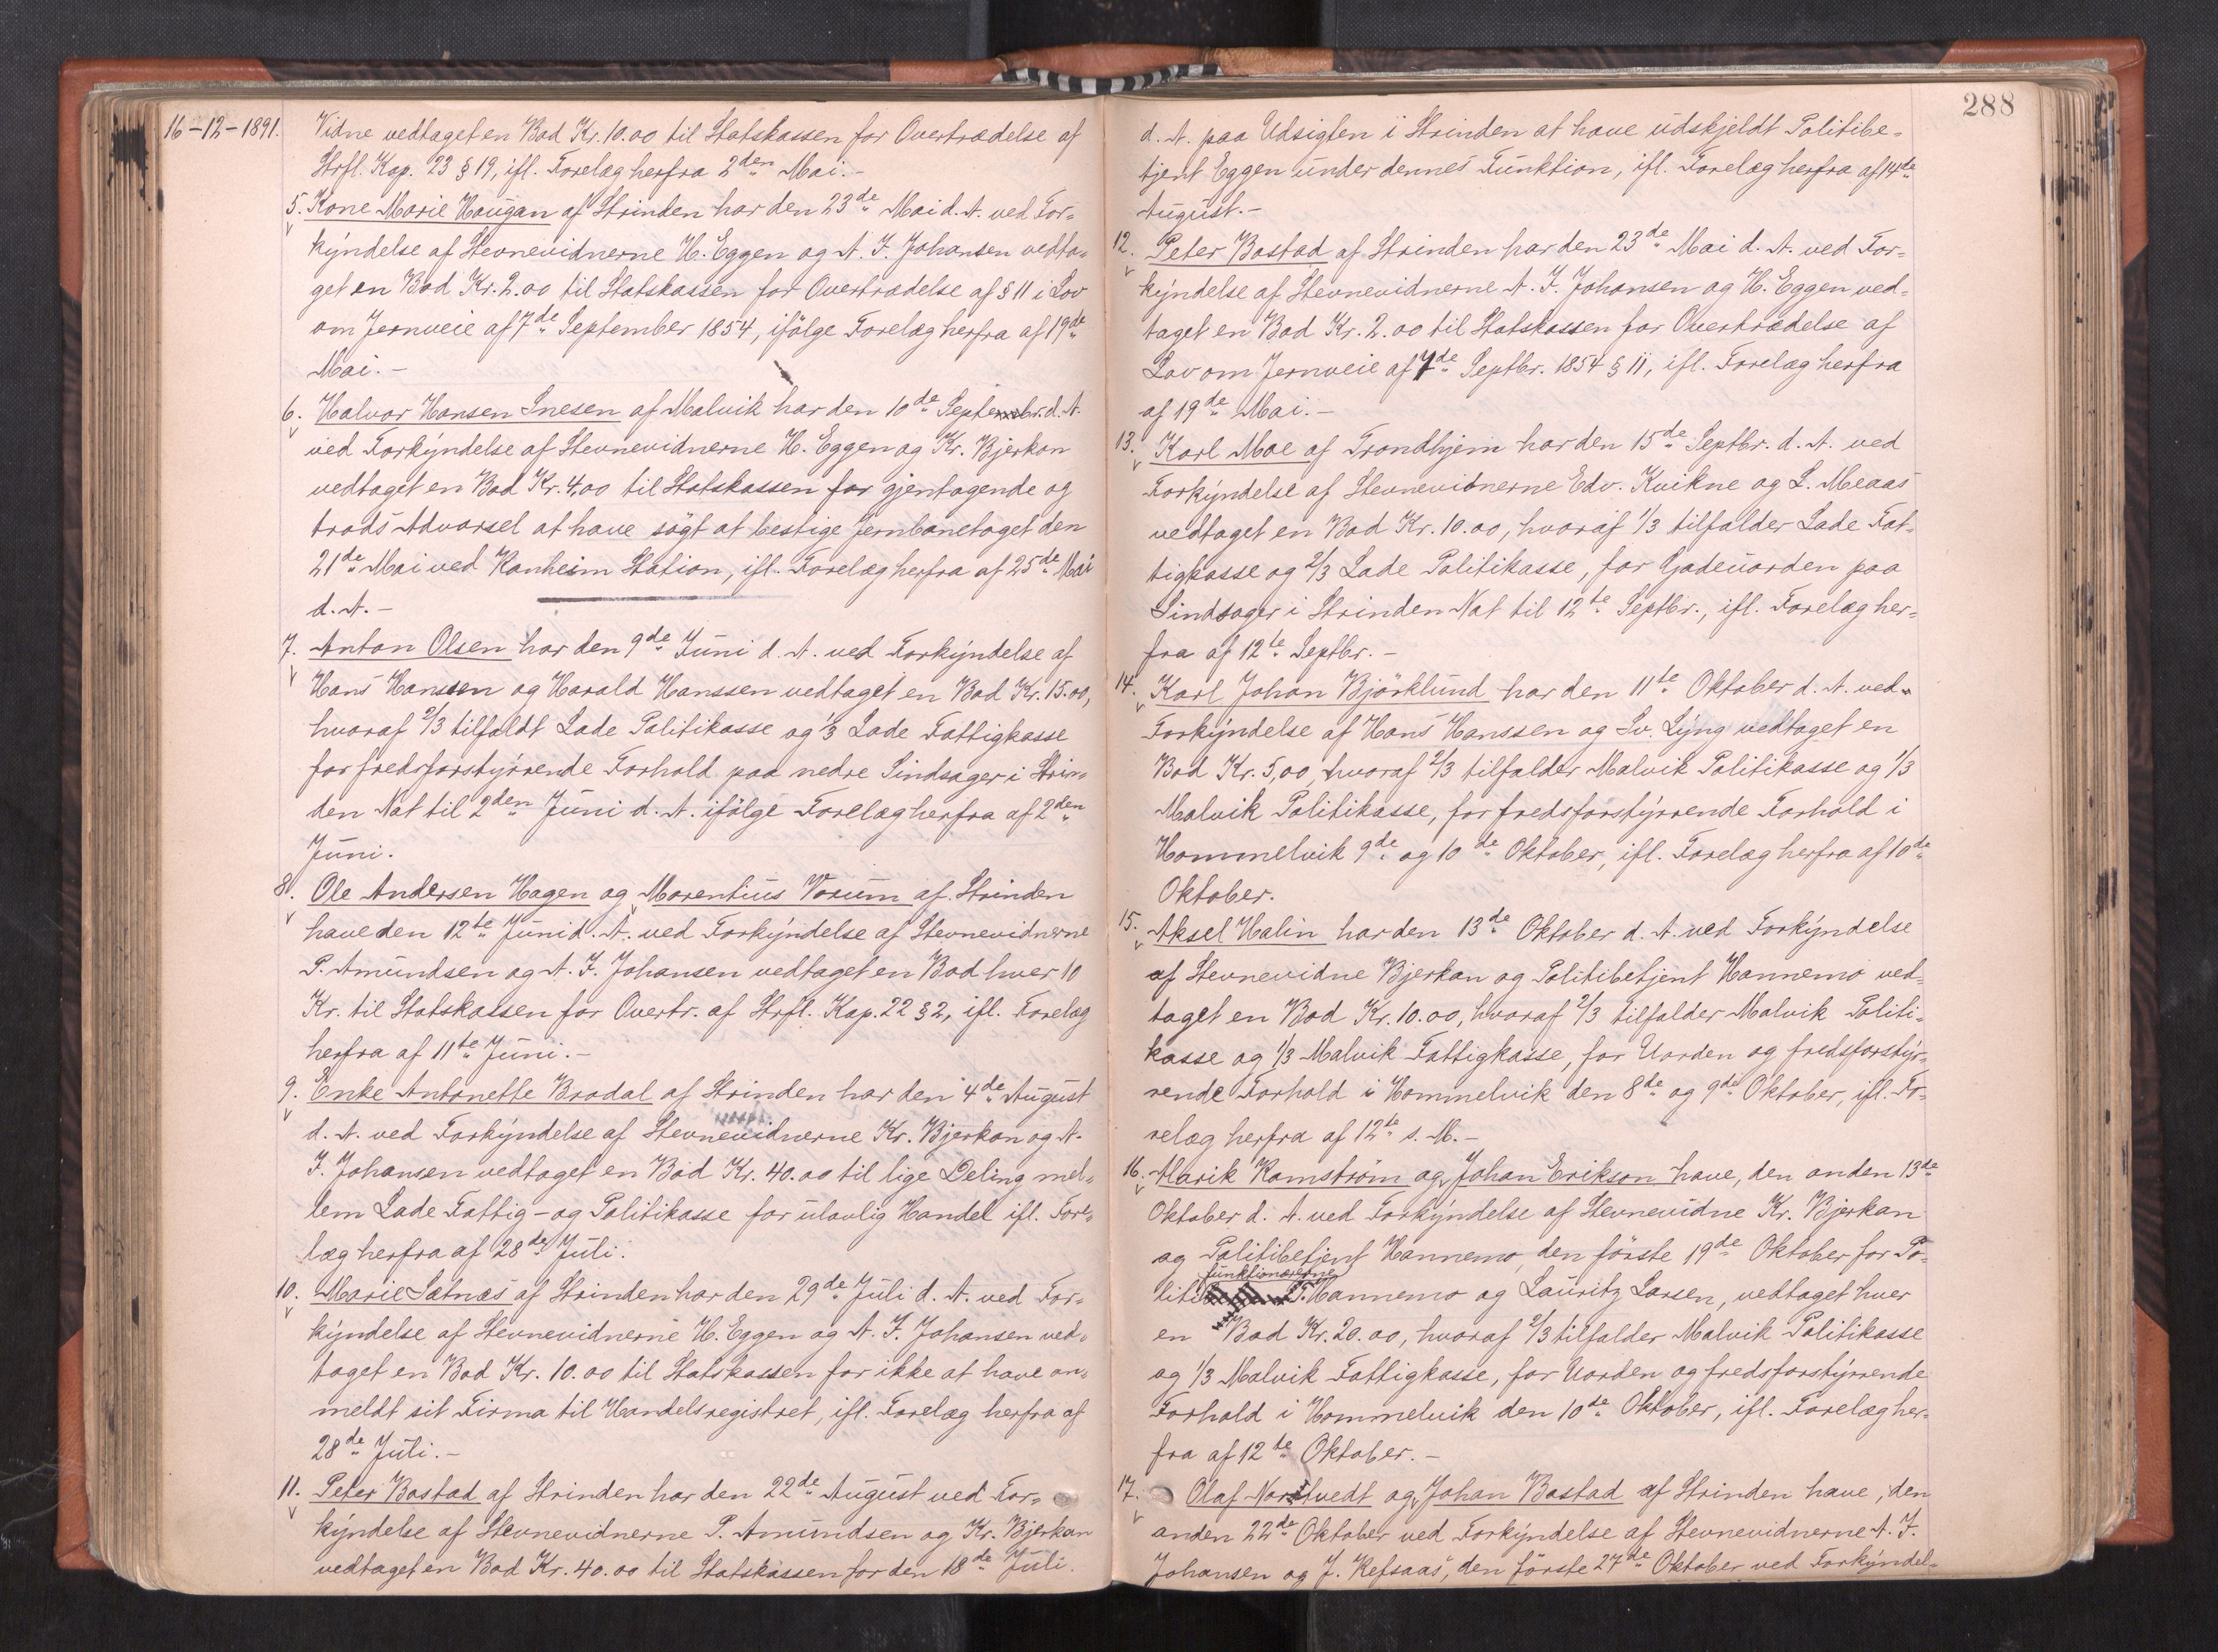 16-12-1891.
Vidne vedtaget en Bod Kr. 10.00 til Statskassen for Overtrædelse af
Strfl. Kap. 23 § 19, ifl. Forelæg herfra 2den Mai.-
5. Kone Marie Haugan af Strinden har den 23de Mai d. A. ved For=
kyndelse af Stevnevidnerne H. Eggen og A. J. Johansen vedta=
get en Bod Kr. 2.00 til Statskassen for Overtrædelse af § 11 i Lov
om Jernveie af 7de September 1854, ifölge Forelæg herfra af 19de
Mai.-
6. Halvor Hansen Snesen af Malvik har den 10de Septembr. d. A.
ved Forkyndelse af Stevnevidnerne H. Eggen og Kr. Bjerkan
vedtaget en Bod Kr. 4,00 til Statskassen for gjentagende og
trods Advarsel at have sögt at bestige Jernbanetoget den
21de Mai ved Ranheim Station, ifl. Forelæg herfra af 25de Mai
d. A.-
7. Anton Olsen har den 9de Juni d. A. ved Forkyndelse af
Hans Hanssen og Harald Hanssen vedtaget en Bod Kr. 15.00,
hvoraf 2/3 tilfaldt Lade Politikasse og 1/3 Lade Fattigkasse
for fredsforstyrrende Forhold paa nedre Sindsager i Strin=
den Nat til 2den Juni d. A. ifölge Forelæg herfra af 2den
Juni.
8. Ole Andersen Hagen og Morentius Vorum af Strinden
have den 12te Juni d. A. ved Forkyndelse af Stevnevidnerne
P. Amundsen og A. J. Johansen vedtaget en Bod hver 10
Kr. til Statskassen for Overtr. af Strfl. Kap. 22 § 2, ifl. Forelæg
herfra af 11te Juni.-
9. Enke Antonette Brodal af Strinden har den 4de August
d. A. ved Forkyndelse af Stevnevidnerne Kr. Bjerkan og A.
J. Johansen vedtaget en Bod Kr. 40.00 til lige Deling mel=
lem Lade Fattig- og Politikasse for ulovlig Handel ifl. Fore=
læg herfra af 28de Juli.
10. Marie Sætnæs af Strinden har den 29de Juli d. A. ved For=
kyndelse af Stevnevidnerne H. Eggen og A. J. Johansen ved=
taget en Bod Kr. 10.00 til Statskassen for ikke at have an=
meldt sit Firma til Handelsregistret, ifl. Forelæg herfra af
28de Juli.-
11. Peter Bostad af Strinden har den 22de August ved For=
kyndelse af Stevnevidnerne P. Amundsen og Kr. Bjerkan
vedtaget en Bod Kr. 40.00 til Statskassen for den 18de Juli
288
d. A. paa Udsigten i Strinden at have udskjeldt Politibe=
tjent Eggen under dennes Funktion, ifl. Forelæg herfra af 14de
August.-
12. Peter Bostad af Strinden har den 23de Mai d. A. ved For=
kyndelse af Stevnevidnerne A. J. Johansen og H. Eggen ved=
taget en Bod Kr. 2.00 til Statskassen for Overtrædelse af
Lov om Jernveie af 7de Septbr. 1854 § 11, ifl. Forelæg herfra
af 19de Mai.-
13. Karl Moe af Trondhjem har den 15de Septbr. d. A. ved
Forkyndelse af Stevnevidnerne Edv. Kvikne og L. Meaas
vedtaget en Bod Kr. 10.00, hvoraf 1/3 tilfalder Lade Fat=
tigkasse og 2/3 Lade Politikasse, for Gadeuorden paa
Sindsager i Strinden Nat til 12te Septbr., ifl. Forelæg her=
fra af 12te Septbr.-
14. Karl Johan Björklund har den 11te Oktober d. A. ved
Forkyndelse af Hans Hanssen og Sv. Lyng vedtaget en
Bod Kr. 5,00, hvoraf 2/3 tilfalder Malvik Politikasse og 1/3
Malvik Politikasse, for fredsforstyrrende Forhold i
Hommelvik 9de og 10de Oktober, ifl. Forelæg herfra af 10de
Oktober.
15. Aksel Halin har den 13de Oktober d. A. ved Forkyndelse
af Stevnevidne Bjerkan og Politibetjent Hannemo ved=
taget en Bod Kr. 10.00, hvoraf 2/3 tilfalder Malvik Politi=
kasse og 1/3 Malvik Fattigkasse, for Uorden og fredsforstyr=
rende Forhold i Hommelvik den 8de og 9de Oktober, ifl. Fo=
relæg herfra af 12te s. M.-
16. Marik Ramström og Johan Erikson have, den anden 13de
Oktober d. A. ved Forkyndelse af Stevnevidne Kr. Bjerkan
og Politibetjent Hannemo, den förste 19de Oktober for Po=
funktionærerne
liti T. Hannemo og Lauritz Larsen, vedtaget hver
en Bod Kr. 20.00, hvoraf 2/3 tilfalder Malvik Politikasse
og 1/3 Malvik Fattigkasse, for Uorden og fredsforstyrrende
Forhold i Hommelvik den 10de Oktober, ifl. Forelæg her=
fra af 12te Oktober.-
17. Olaf Nordtvedt og Johan Bostad af Strinden have, den
anden 22de Oktober ved Forkyndelse af Stevnevidnerne A. J.
Johansen og J. Refsaas, den förste 27de Oktober ved Forkyndel=